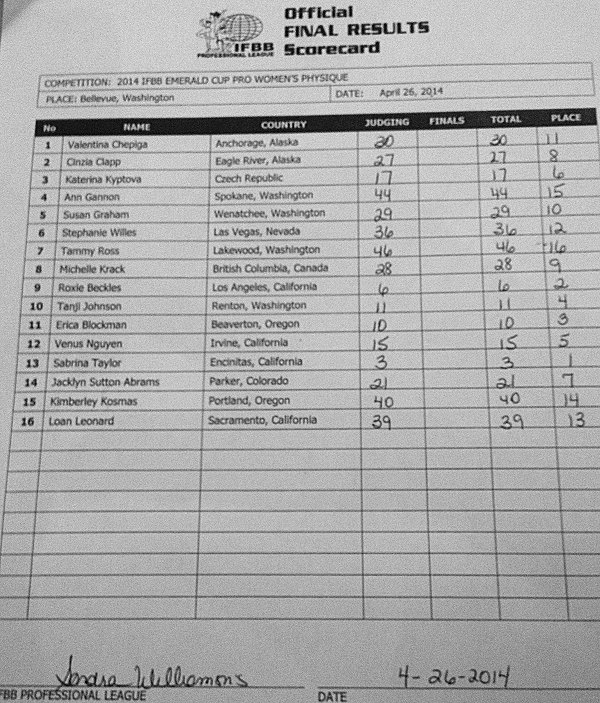 Official
FINAL RESULTS
Scorecard
IFBB
PROFESSIONAL LEAGUE
COMPETITION: 2014 IFBB EMERALD CUP PRO WOMEN'S PHYSIQUE
PLACE: Bellevue, Washington DATE: April 26, 2014
No NAME COUNTRY JUDGING FINALS TOTAL PLACE
1 Valentina Chepiga Anchorage, Alaska 30 30 11
2 Cinzia Clapp Eagle River, Alaska 27 27 8
3 Katerina Kyptova Czech Republic 17 17 6
4 Ann Gannon Spokane, Washington 44 44 15
5 Susan Graham Wenatchee, Washington 29 29 10
6 Stephanie Willes Las Vegas, Nevada 36 36 12
7 Tammy Ross Lakewood, Washington 46 46 16
8 Michelle Krack British Columbia, Canada 28 28 9
9 Roxie Beckles Los Angeles, California 6 6 2
10 Tanji Johnson Renton, Washington 11 11 4
11 Erica Blockman Beaverton, Oregon 10 10 3
12 Venus Nguyen Irvine, California 15 15 5
13 Sabrina Taylor Encinitas, California 3 3 1
14 Jacklyn Sutton Abrams Parker, Colorado 21 21 7
15 Kimberley Kosmas Portland, Oregon 40 40 14
16 Loan Leonard Sacramento, California 39 39 13
Sandra Williamons 4-26-2014
FBB PROFESSIONAL LEAGUE DATE